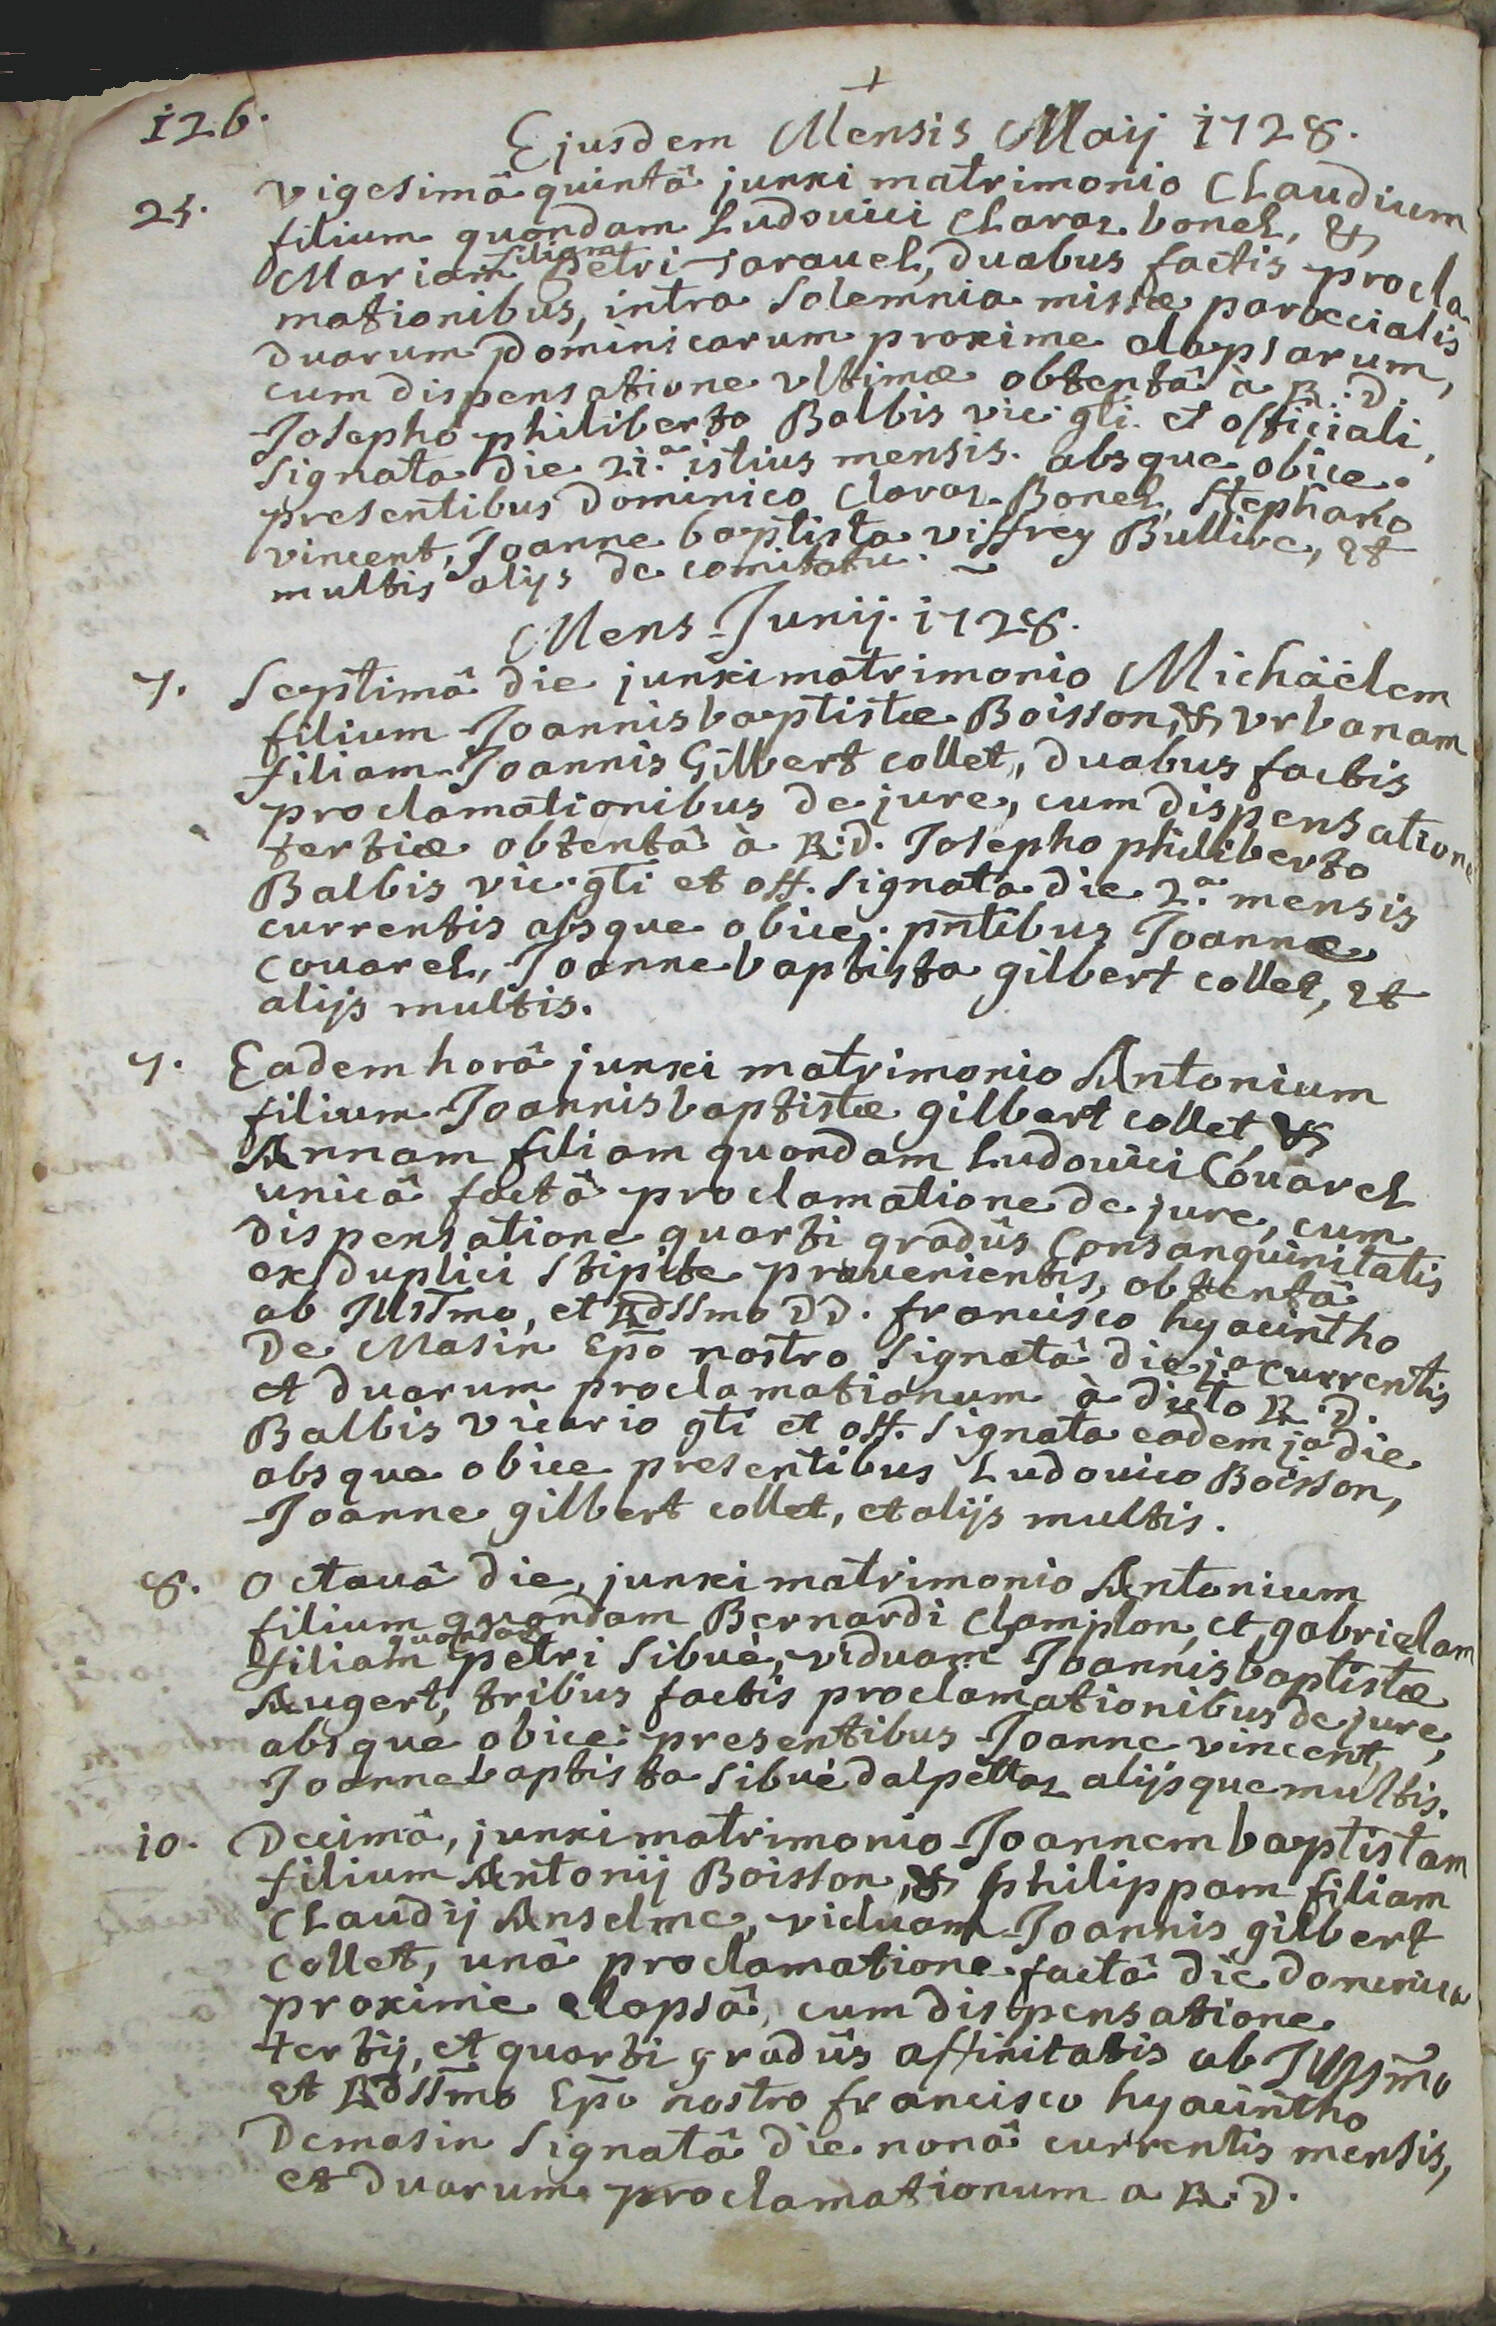 +
126.
Ejusdem Mensis Maij 1728.
25. vigesimâ quintâ junxi matrimonio Claudium
filium quondam Ludovici Claraz bonel, &
Mariam filiam Petri Taravel, duabus factis procla-
mationibus, intra solemnia missæ paroecialis
duarum Dominicarum proxime elapsarum,
cum dispensatione ultimæ obtentâ à R.D.
Josepho philiberto Balbis vic. gli. et officiali,
signata die 21.a istius mensis. absque obice.
presentibus Dominico Claraz Bonel, Stephano
vincent, Joanne baptista viffrey Bullive, et
multis alijs de comitatu.
Mens Junij. 1728.
7. Septimâ die junxi matrimonio Michäelem
filium Joannisbaptistæ Boisson, & Urbanam
filiam Joannis Gilbert collet, duabus factis
proclamationibus de jure, cum dispensatione
tertiæ obtentâ à R.D. Josepho philiberto
Balbis vic. gli et off. signata die 2.a mensis
currentis absque obice. pntibus Joanne
Couarel, Joannebaptista gilbert collet, et
alijs multis.
7. Eadem horâ junxi matrimonio Antonium
filium Joannisbaptistæ gilbert collet, &
Annam filiam quondam Ludovici Couarel
unicâ factâ proclamatione de jure, cum
dispensatione quarti gradûs Consanguinitatis
ex duplici stipite provenientis, obtentâ
ab Jllstmo, et Rdssmo DD. francisco hyacintho
De Masin Epo nostro signatâ die ja currentis
et duarum proclamationum à dicto R.D.
Balbis vicario gli et off. signata eadem ja die
absque obice presentibus Ludovico Boisson,
Joanne gilbert collet, et alijs multis.
8. Octavâ die, junxi matrimonio Antonium
filium quondam Bernardi Clamplon, et gabrielam
filiam quondam petri Sibué, viduam Joannisbaptistæ
Augert, tribus factis proclamationibus de jure,
absque obice: presentibus Joanne vincent,
Joannebaptista Sibué dalpettaz alijsque multis.
10. Decimâ, junxi matrimonio Joannembaptistam
filium Antonij Boisson, & philippam filiam
Claudij Anselme, viduam Joannis gilbert
Collet, unâ proclamatione factâ die dominica
proxime elapsâ, cum dispensatione
tertij, et quarti gradûs affinitatis ab Jllssmo
et Rdssmo Epo nostro francisco hyacintho
Demasin signatâ die nonâ currentis mensis,
et duarum proclamationum a R.D.